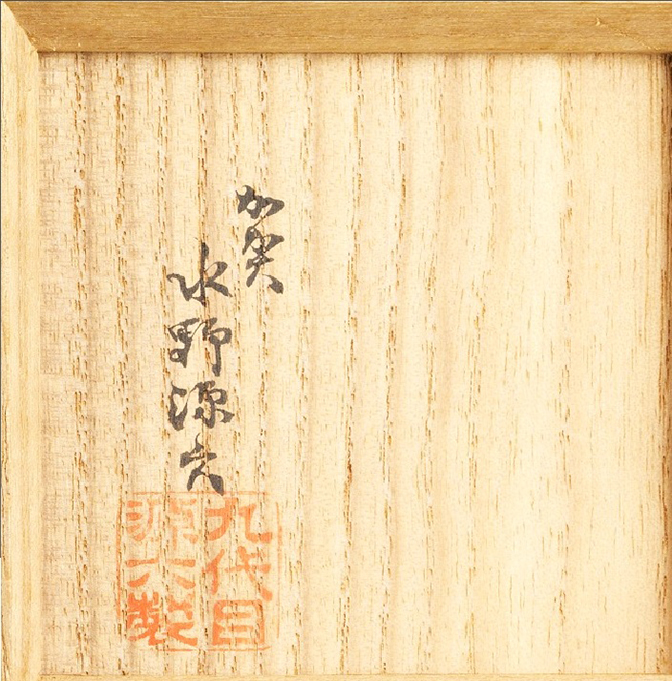 加賀
水野源六
九代目
源六製